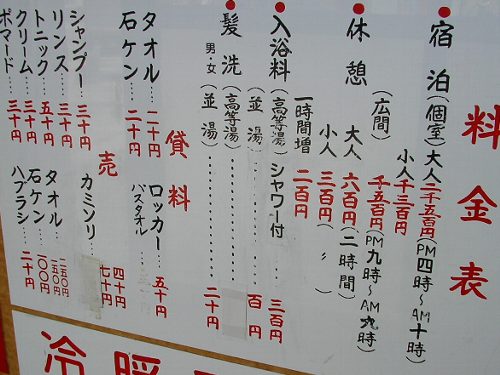 料金表
宿泊(個室)大人二千五百円(PM四時〜AM十時)
小人千三百円
(広間)千五百円(PM九時〜AM九時)
休憩 大人六百円(二時間)
小人三百円(〃)
一時間増二百円
入浴料(高等湯)シャワー付 三百円
(並湯)……百円
髪洗(高等湯)……
男・女(並湯)……二十円
貸料
タオル…二十円
石ケン…二十円
ロッカー…五十円
バスタオル
シャンプー…三十円
リンス…三十円
トニック…五十円
クリーム…三十円
ポマード…三十円
売
カミソリ… 四十円
七十円
タオル… 二五〇円
一五〇円
石ケン…一〇〇円
ハブラシ…二十円
冷暖